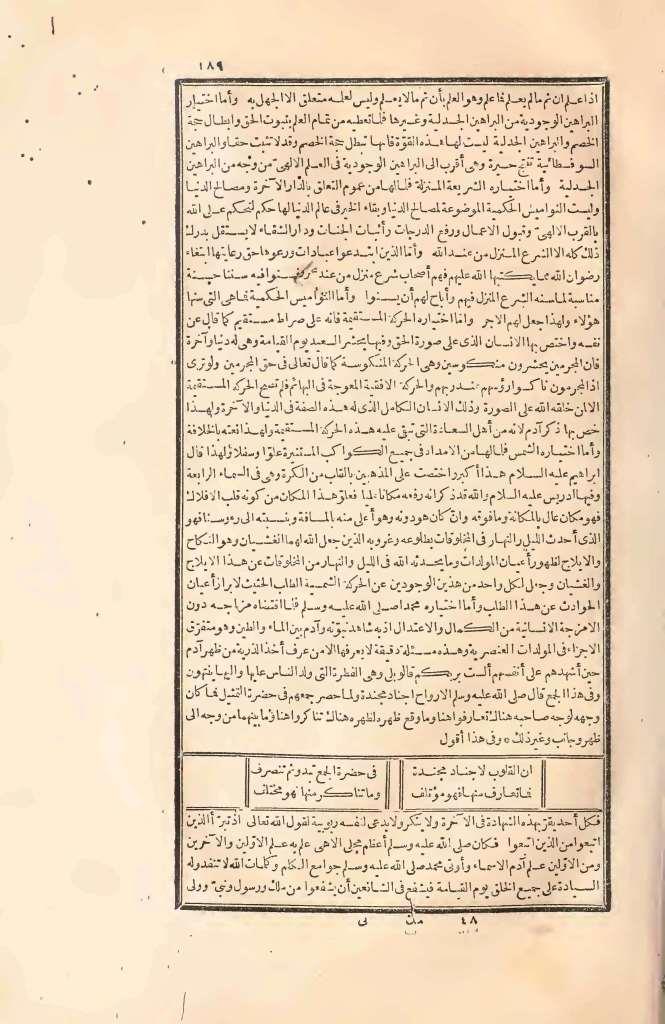 ١٨٩
اذا علم ان ثم ما لم يعلم فما علم وهو العلم بأن ثم ما لا يعلم وليس لعلمه متعلق الا الجهل به وأما اختيار
البراهين الوجودية من البراهين الجدلية وغيرها فلما تعطيه من تمام العلم بثبوت الحق وابطال حجة
الخصم والبراهين الجدلية ليست لها هذه القوة فانها تبطل حجة الخصم وقد لا تثبت حقا والبراهين
السوفسطائية تنتج حيرة وهى أقرب الى البراهين الوجودية فى العلم الالهىّ من وجه من البراهين
الجدلية وأما اختياره الشريعة المنزلة فلما لها من عموم التعلق بالدار الآخرة ومصالح الدنيا
وليست النواميس الحكمية الموضوعة لمصالح الدنيا وبقاء الخير فى عالم الدنيا لها حكم لتحكم على الله
بالقرب الالهىّ وقبول الاعمال ورفع الدرجات واثبات الجنات ودار الشقاء لا يستقل بدرك
ذلك كله الا الشرع المنزل من عند الله وأما الذين ابتدعوا عبادات ورعوها حق رعايتها ابتغاء
رضوان الله مما يكتبها الله عليهم فهم أصحاب شرع منزل من عند فيه سننا حسنة
مناسبة لما سنه الشرع المنزل فيهم وأباح لهم أن يسنوا وأما النواميس الحكمية فما هى التى سنها
هؤلاء ولهذا جعل لهم الاجر وأما اختياره الحركة المستقيمة فانه على صراط مستقيم كما قال عن
نفسه واختص بها الانسان الذى على صورة الحق وفيها يحشر السعيد يوم القيامة وهى له دنيا وآخرة
فان المجرمين يحشرون منكوسين وهى الحركة المنكوسة كما قال تعالى فى حق المجرمين ولو ترى
اذ المجرمون ناكسوا رؤسهم عند ربهم والحركة الافقية المعوجة فى البهائم فلم تصح الحركة المستقيمة
الا لمن خلقه الله على الصورة وذلك الانسان الكامل الذى له هذه الصفة فى الدنيا والآخرة ولهذا
خص بها ذكر آدم لانه من أهل السعادة التى تبقى عليه هذه الحركة المستقيمة ولهذا نعته بالخلافة
وأما اختياره الشمس فلما لها من الامداد فى جميع الكواكب المستنيرة علوا وسفلا ولهذا قال
ابراهيم عليه السلام هذا أكبر واختصت على المذهبين بالقلب من الكرة وهى فى السماء الرابعة
وفيها ادريس عليه السلام والله قد ذكر انه رفعه مكانا عليا فعلوّ هذا المكان من كونه قلب الافلاك
فهو مكان عال بالمكانة وما فوقه وان كان هو دونه وهو أعلى منه بالمسافة وبنسبته الى رءوسنا فهو
الذى أحدث الليل والنهار فى المخلوقات بطلوعه وغروبه الذين جعل الله لهما الغشيان وهو النكاح
والايلاج لظهور أعيان المولدات وما يحدثه الله فى الليل والنهار من المخلوقات عن هذا الايلاج
والغشيان وجعل لكل واحد من هذين الوجودين عن الحركة الشمسية الطلب الحثيث لابراز أعيان
الحوادث عن هذا الطلب وأما اختياره محمدا صلى الله عليه وسلم فلما اقتضاه مزاجه دون
الامزجة الانسانية من الكمال والاعتدال اذ به شاهد نبوّته وآدم بين الماء والطين وهو متفرّق
الاجزاء فى المولدات العنصرية وهذه مسئلة دقيقة لا يعرفها الا من عرف أخذ الذرية من ظهر آدم
حين أشهدهم على أنفسهم ألست بربكم قالوا بلى وهى الفطرة التى ولد الناس عليها واليها ينتهون
وفى هذا الجمع قال صلى الله عليه وسلم الارواح اجناد مجندة ولما حصر جمعهم فى حضرة التمثيل فما كان
وجهه لوجه صاحبه هناك تعارفوا هنا وما وقع ظهره لظهره هناك تناكروا هنا وما بينهما من وجه الى
ظهر وجانب وغير ذلك وفى هذا أقول
ان القلوب لاجناد مجندة فى حضرة الجمع تبدو ثم تنصرف
فما تعارف منها فهو مؤتلف وما تناكر منها فهو مختلف
فكل أحد يقرّ بهذه الشهادة فى الآخرة ولا ينكر ولا يدعى لنفسه ربوبية لقول الله تعالى اذ تبرّأ الذين
اتبعوا من الذين اتبعوا فكان صلى الله عليه وسلم أعظم مجلى الاهى علم به علم الاوّلين والآخرين
ومن الاوّلين علم آدم الاسماء وأوتى محمد صلى الله عليه وسلم جوامع الكلم وكلمات الله لا تنفد وله
السيادة على جميع الخلق يوم القيامة فيشفع فى الشافعين أن يشفعوا من ملك ورسول ونبىّ وولى
٤٨ مك نى